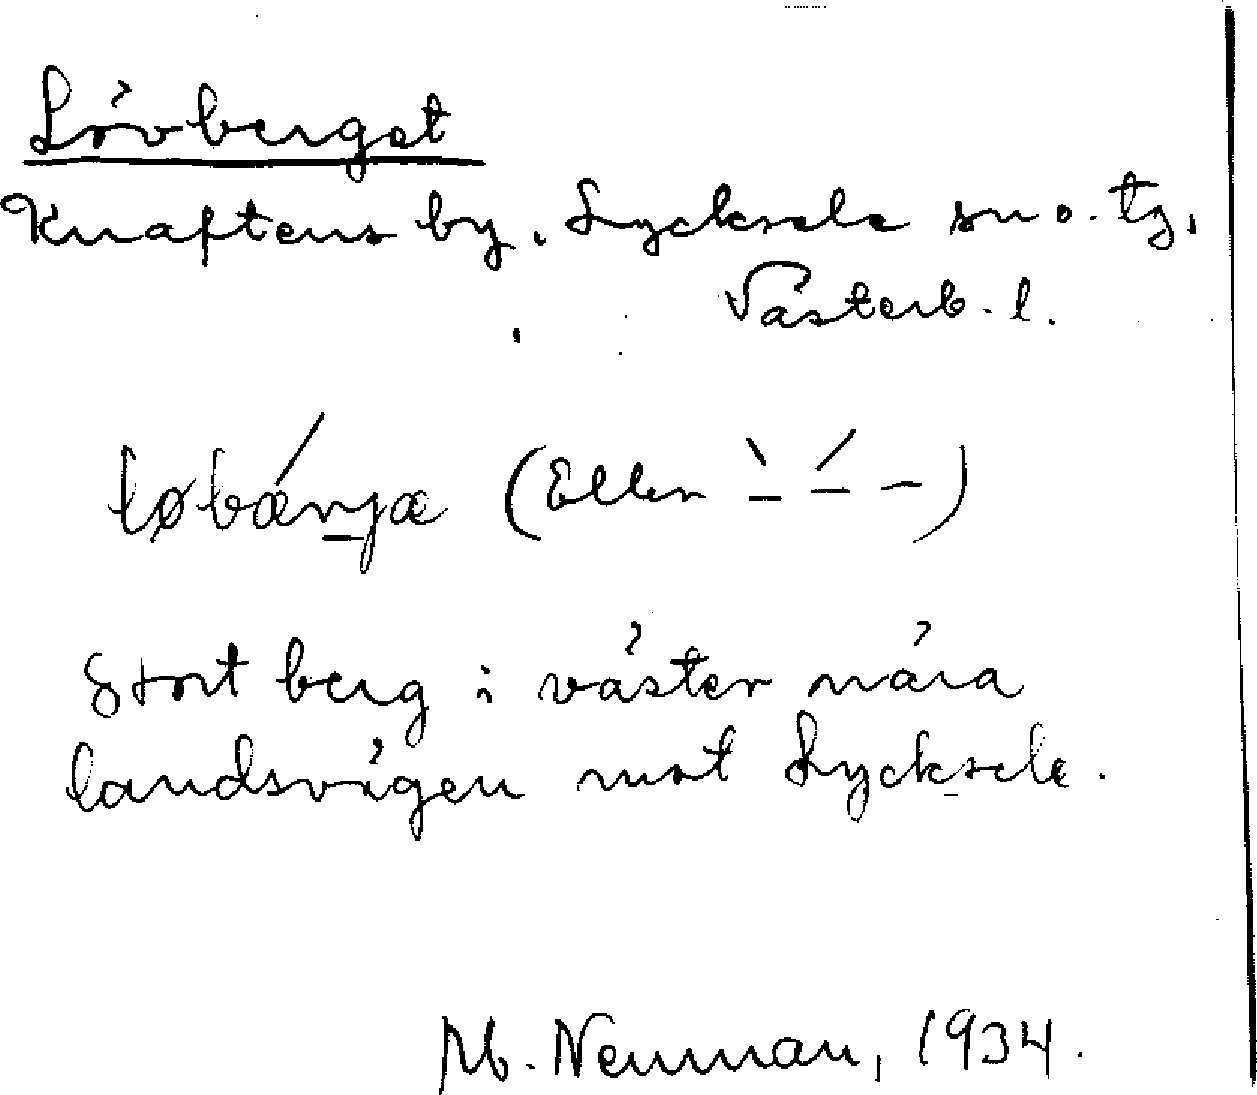 Lövberget
Knaftens by, Lycksele sn o. tg,
Västerb. l.
løbǽrjæ (Eller ˋ– ˊ– –)
Stort berg i väster nära
landsvägen mot Lycksele.
M. Neuman, 1934.